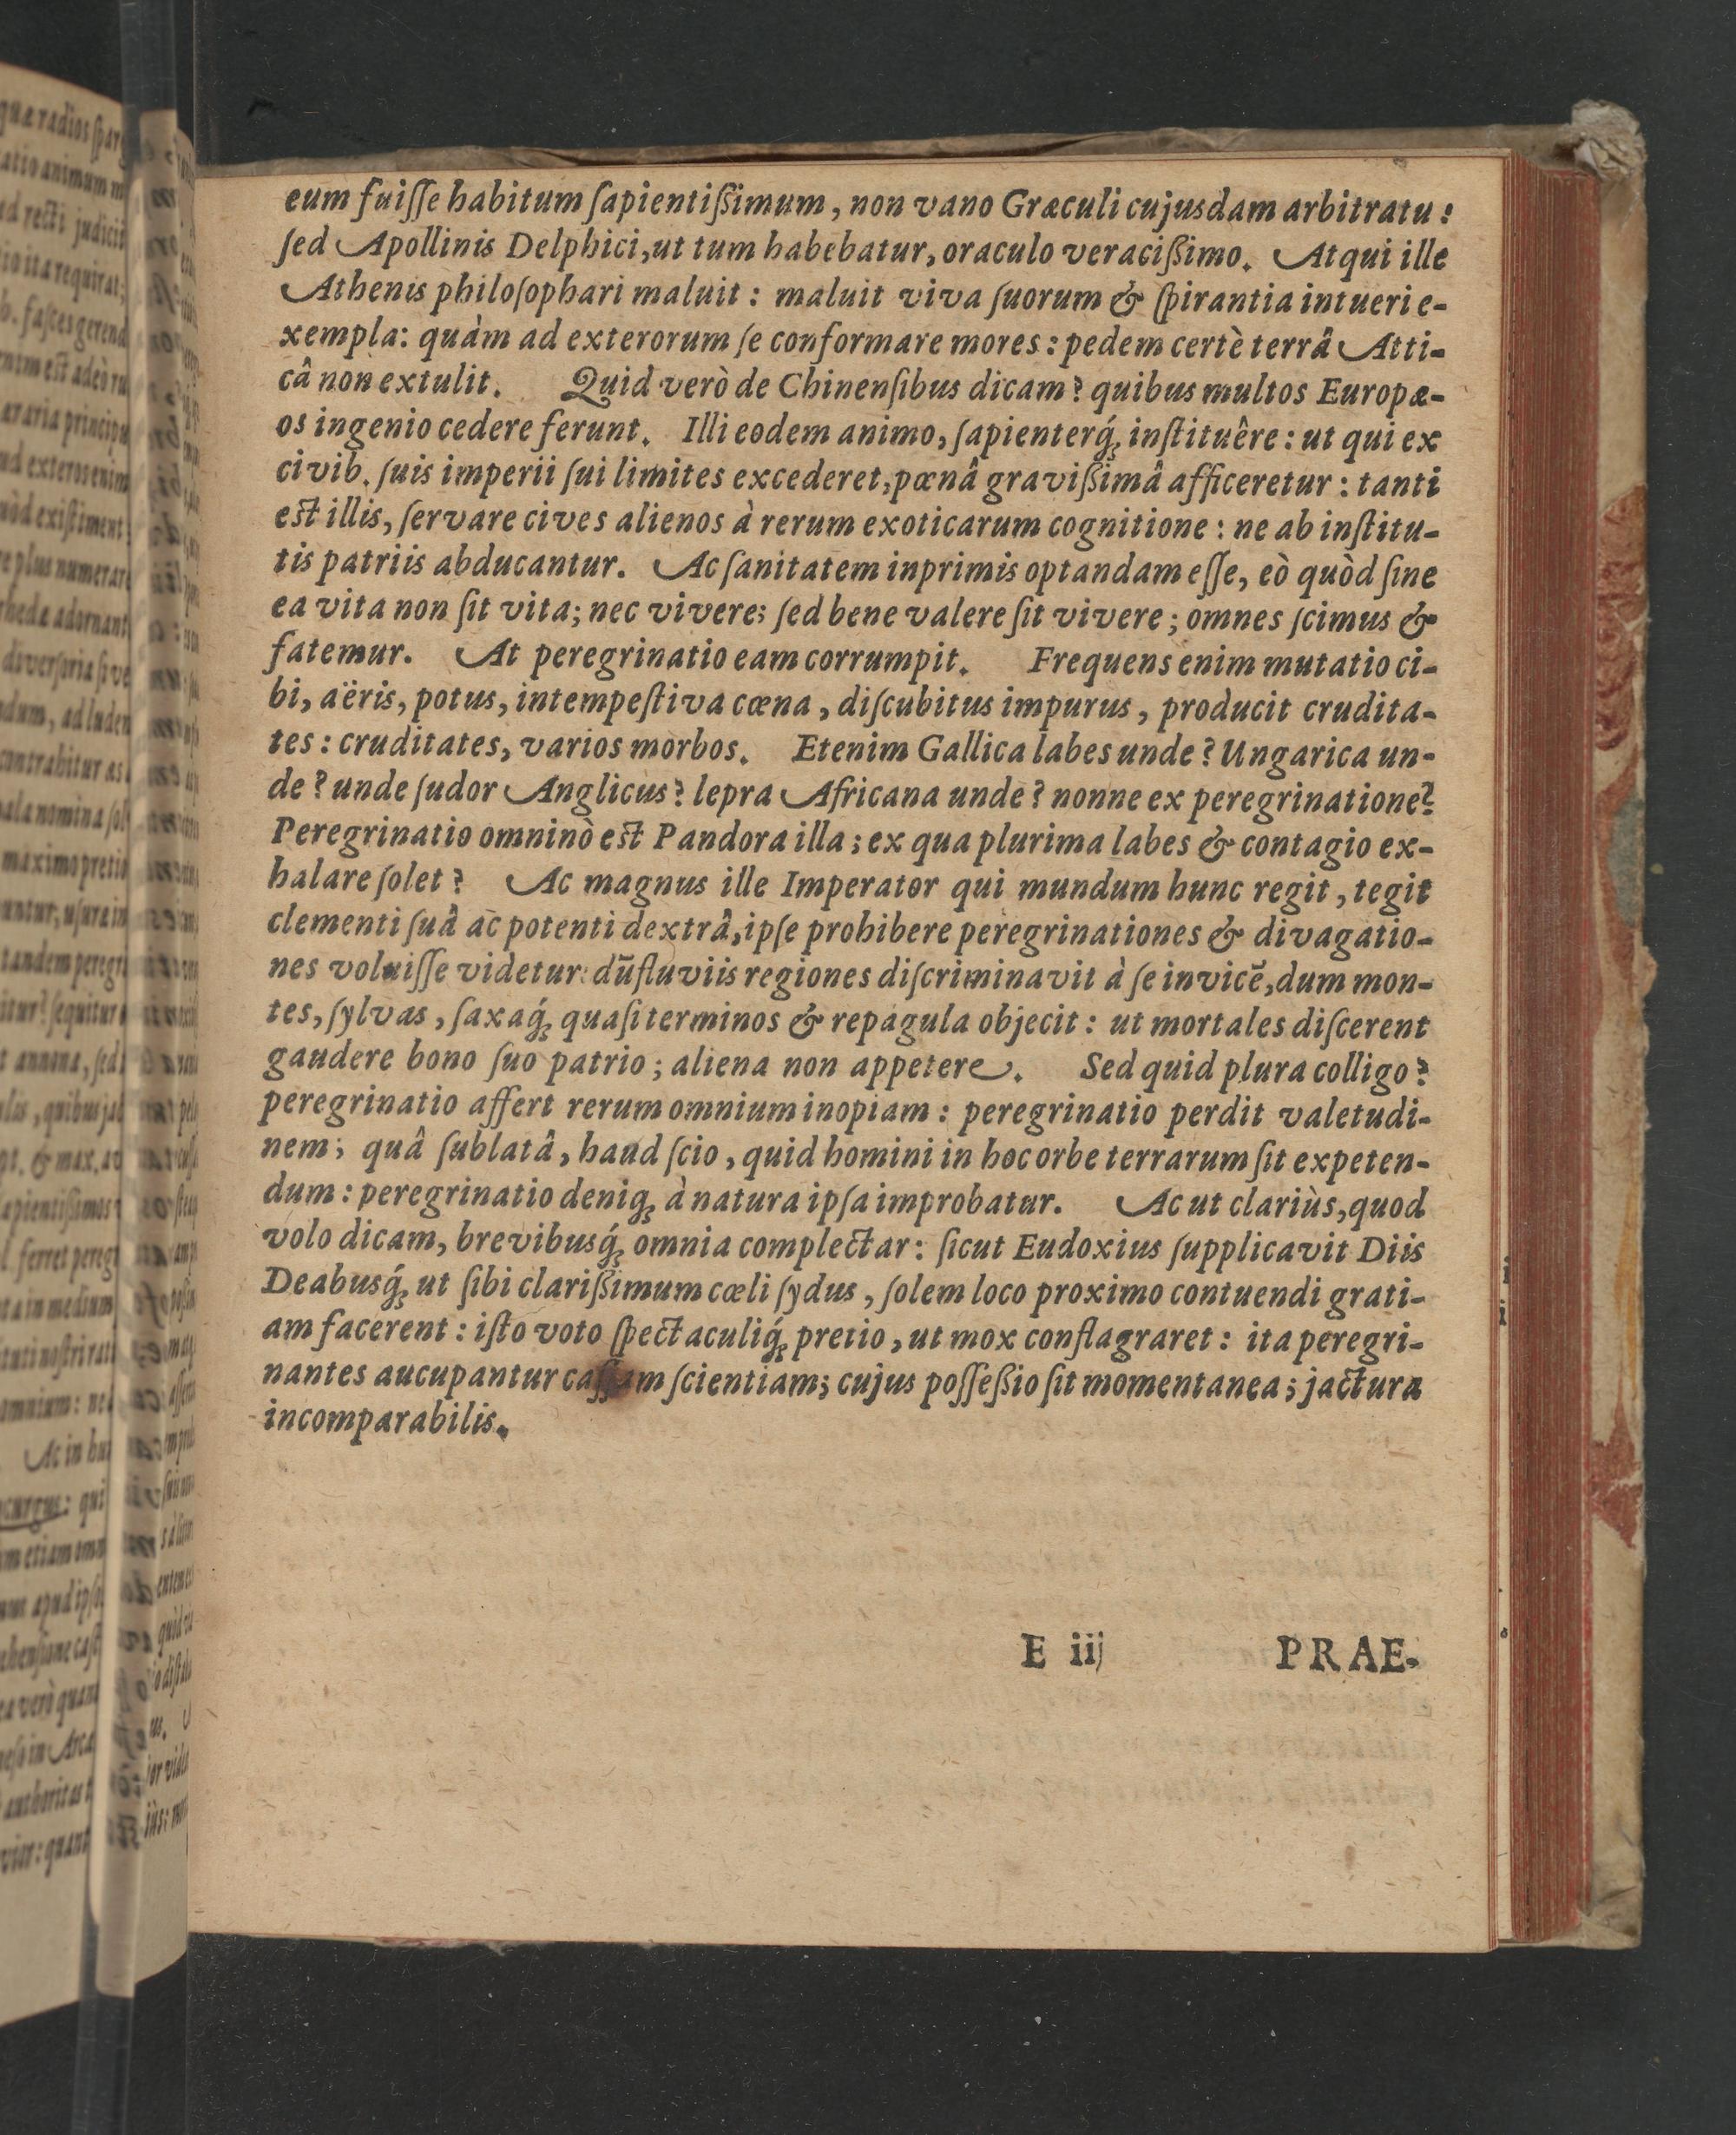 eum fuiſſe habitum ſapientißimum, non vano Græculi cujusdam arbitratu:
ſed Apollinis Delphici, ut tum habebatur, oraculo veracißimo. Atqui ille
Athenis philoſophari maluit: maluit viva ſuorum & ſpirantia intueri e-
xempla: quàm ad exterorum ſe conformare mores: pedem certè terrâ Atti-
câ non extulit. Quid verò de Chinenſibus dicam? quibus multos Europæ-
os ingenio cedere ferunt. Illi eodem animo, ſapienterq́; inſtituêre: ut qui ex
civib. ſuis imperii ſui limites excederet, pœnâ gravißimâ afficeretur: tanti
est illis, ſervare cives alienos à rerum exoticarum cognitione: ne ab inſtitu-
tis patriis abducantur. Ac ſanitatem inprimis optandam eſſe, eò quòd ſine
ea vita non ſit vita; nec vivere; ſed bene valere ſit vivere; omnes ſcimus &
fatemur. At peregrinatio eam corrumpit. Frequens enim mutatio ci-
bi, aëris, potus, intempeſtiva cœna, diſcubitus impurus, producit crudita-
tes: cruditates, varios morbos. Etenim Gallica labes unde? Ungarica un-
de? unde ſudor Anglicus? lepra Africana unde? nonne ex peregrinatione?
Peregrinatio omninò est Pandora illa; ex qua plurima labes & contagio ex-
halare ſolet? Ac magnus ille Imperator qui mundum hunc regit, tegit
clementi ſuâ ac potenti dextrâ, ipſe prohibere peregrinationes & divagatio-
nes voluiſſe videtur: dū fluviis regiones diſcriminavit à ſe invicē, dum mon-
tes, ſylvas, ſaxaq́; quaſi terminos & repagula objecit: ut mortales diſcerent
gaudere bono ſuo patrio; aliena non appetere. Sed quid plura colligo?
peregrinatio affert rerum omnium inopiam: peregrinatio perdit valetudi-
nem; quâ ſublatâ, haud ſcio, quid homini in hoc orbe terrarum ſit expeten-
dum: peregrinatio deniq; à natura ipſa improbatur. Ac ut clariùs, quod
volo dicam, brevibusq́; omnia complectar: ſicut Eudoxius ſupplicavit Diis
Deabusq́; ut ſibi clarißimum cœli ſydus, ſolem loco proximo contuendi grati-
am facerent: iſto voto ſpectaculiq́; pretio, ut mox conflagraret: ita peregri-
nantes aucupantur caſſam ſcientiam; cujus poſſeßio ſit momentanea; jactura
incomparabilis.
E iij PRAE-